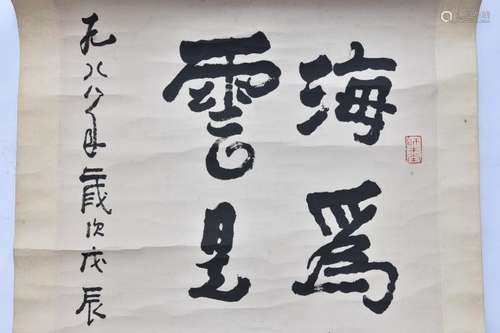 海為
雲是
一九八八年歲次戊辰